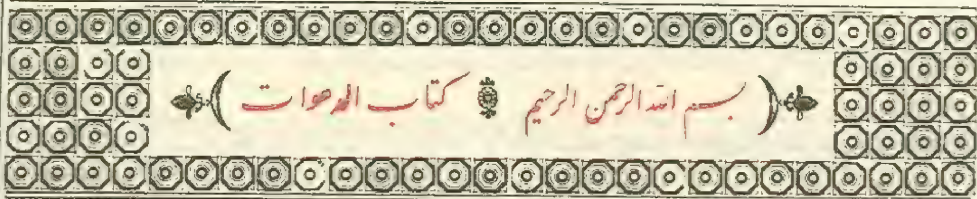 بسم الله الرحمن الرحيم كتاب الدعوات